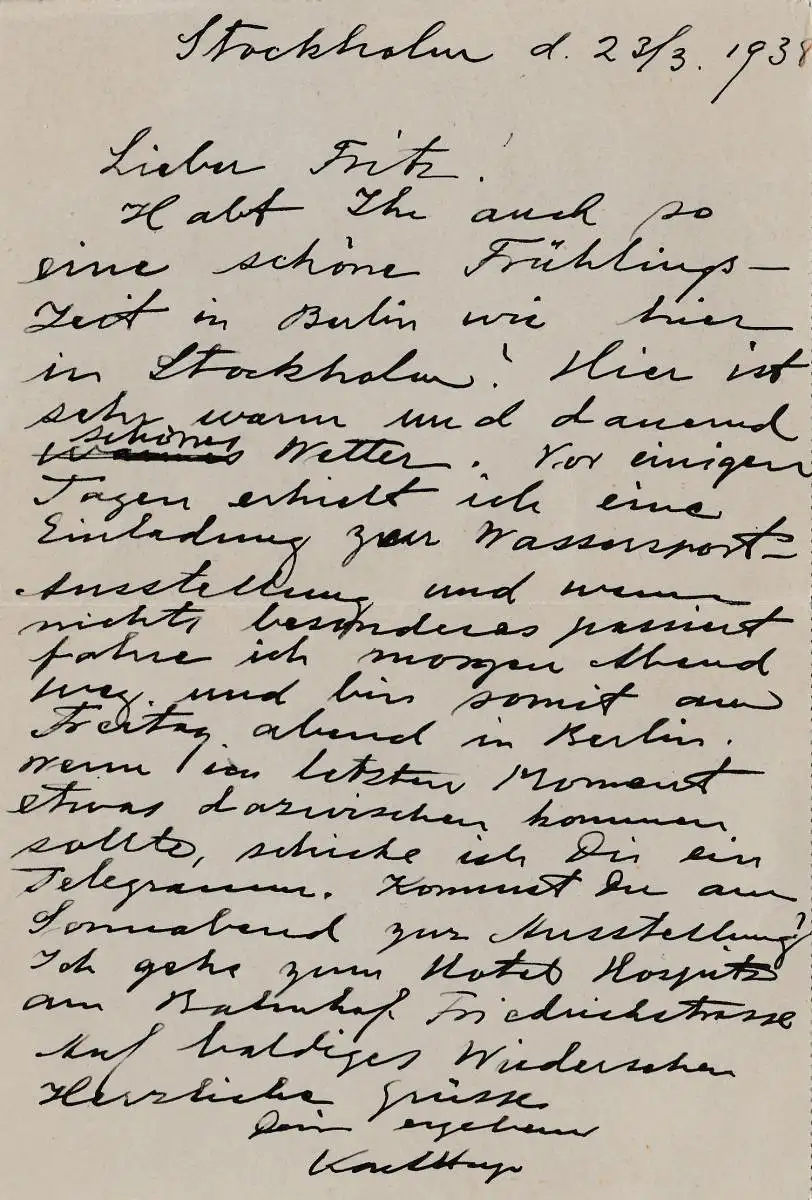 Stockholm d. 23/3. 1938
Lieber Fritz!
Habt Ihr auch so
eine schöne Frühlings-
Zeit in Berlin wie hier
in Stockholm? Hier ist
sehr warm und dauernd
schönes
warmes Wetter. Vor einigen
Tagen erhielt ich eine
Einladung zur Wassersport-
Ausstellung und wenn
nichts besonderes passiert
fahre ich morgen Abend
weg und bin somit am
Freitag abend in Berlin.
Wenn im letzten Moment
etwas dazwischen kommen
sollte, schicke ich Dir ein
Telegramm. Kommst Du am
Sonnabend zur Ausstellung?
Ich gehe zum Hotel Hospitz
am Bahnhof Friedrichstrasse
Auf baldiges Wiedersehen
Herzliche Grüsse
Dein ergebener